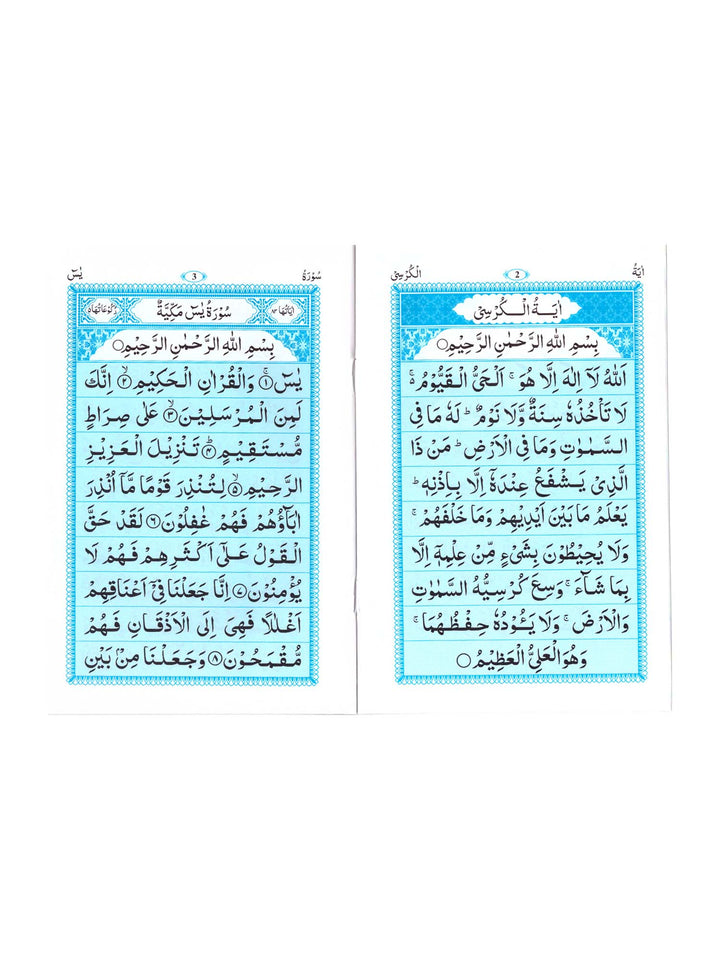 اٰيَةُ
2
الْكُرْسِيِّ
اٰيَةُ الْكُرْسِيِّ
بِسْمِ اللّٰهِ الرَّحْمٰنِ الرَّحِيْمِ○
اَللّٰهُ لَآ اِلٰهَ اِلَّا هُوَ ۚ اَلْحَیُّ الْقَيُّوْمُ ۚ۬
لَا تَاْخُذُهٗ سِنَةٌ وَّلَا نَوْمٌ ؕ لَهٗ مَا فِی
السَّمٰوٰتِ وَمَا فِی الْاَرْضِ ؕ مَنْ ذَا
الَّذِیْ يَشْفَعُ عِنْدَهٗٓ اِلَّا بِاِذْنِهٖ ؕ
يَعْلَمُ مَا بَيْنَ اَيْدِيْهِمْ وَمَا خَلْفَهُمْ ۚ
وَلَا يُحِيْطُوْنَ بِشَیْءٍ مِّنْ عِلْمِهٖٓ اِلَّا
بِمَا شَآءَ ۚ وَسِعَ كُرْسِيُّهُ السَّمٰوٰتِ
وَالْاَرْضَ ۚ وَلَا يَـُٔوْدُهٗ حِفْظُهُمَا ۚ
وَهُوَ الْعَلِیُّ الْعَظِيْمُ○
سُوْرَةُ
3
يٰسٓ
اٰيَاتُهَا ٨٣
سُوْرَةُ يٰسٓ مَكِّيَّةٌ
رُكُوْعَاتُهَا ٥
بِسْمِ اللّٰهِ الرَّحْمٰنِ الرَّحِيْمِ○
يٰسٓ ۝١ وَالْقُرْاٰنِ الْحَكِيْمِ ۝٢ اِنَّكَ
لَمِنَ الْمُرْسَلِيْنَ ۝٣ عَلٰى صِرَاطٍ
مُّسْتَقِيْمٍ ۝٤ تَنْزِيْلَ الْعَزِيْزِ
الرَّحِيْمِ ۝٥ لِتُنْذِرَ قَوْمًا مَّآ اُنْذِرَ
اٰبَآؤُهُمْ فَهُمْ غٰفِلُوْنَ ۝٦ لَقَدْ حَقَّ
الْقَوْلُ عَلٰٓى اَكْثَرِهِمْ فَهُمْ لَا
يُؤْمِنُوْنَ ۝٧ اِنَّا جَعَلْنَا فِیْٓ اَعْنَاقِهِمْ
اَغْلٰلًا فَهِیَ اِلَى الْاَذْقَانِ فَهُمْ
مُّقْمَحُوْنَ ۝٨ وَجَعَلْنَا مِنْۢ بَيْنِ